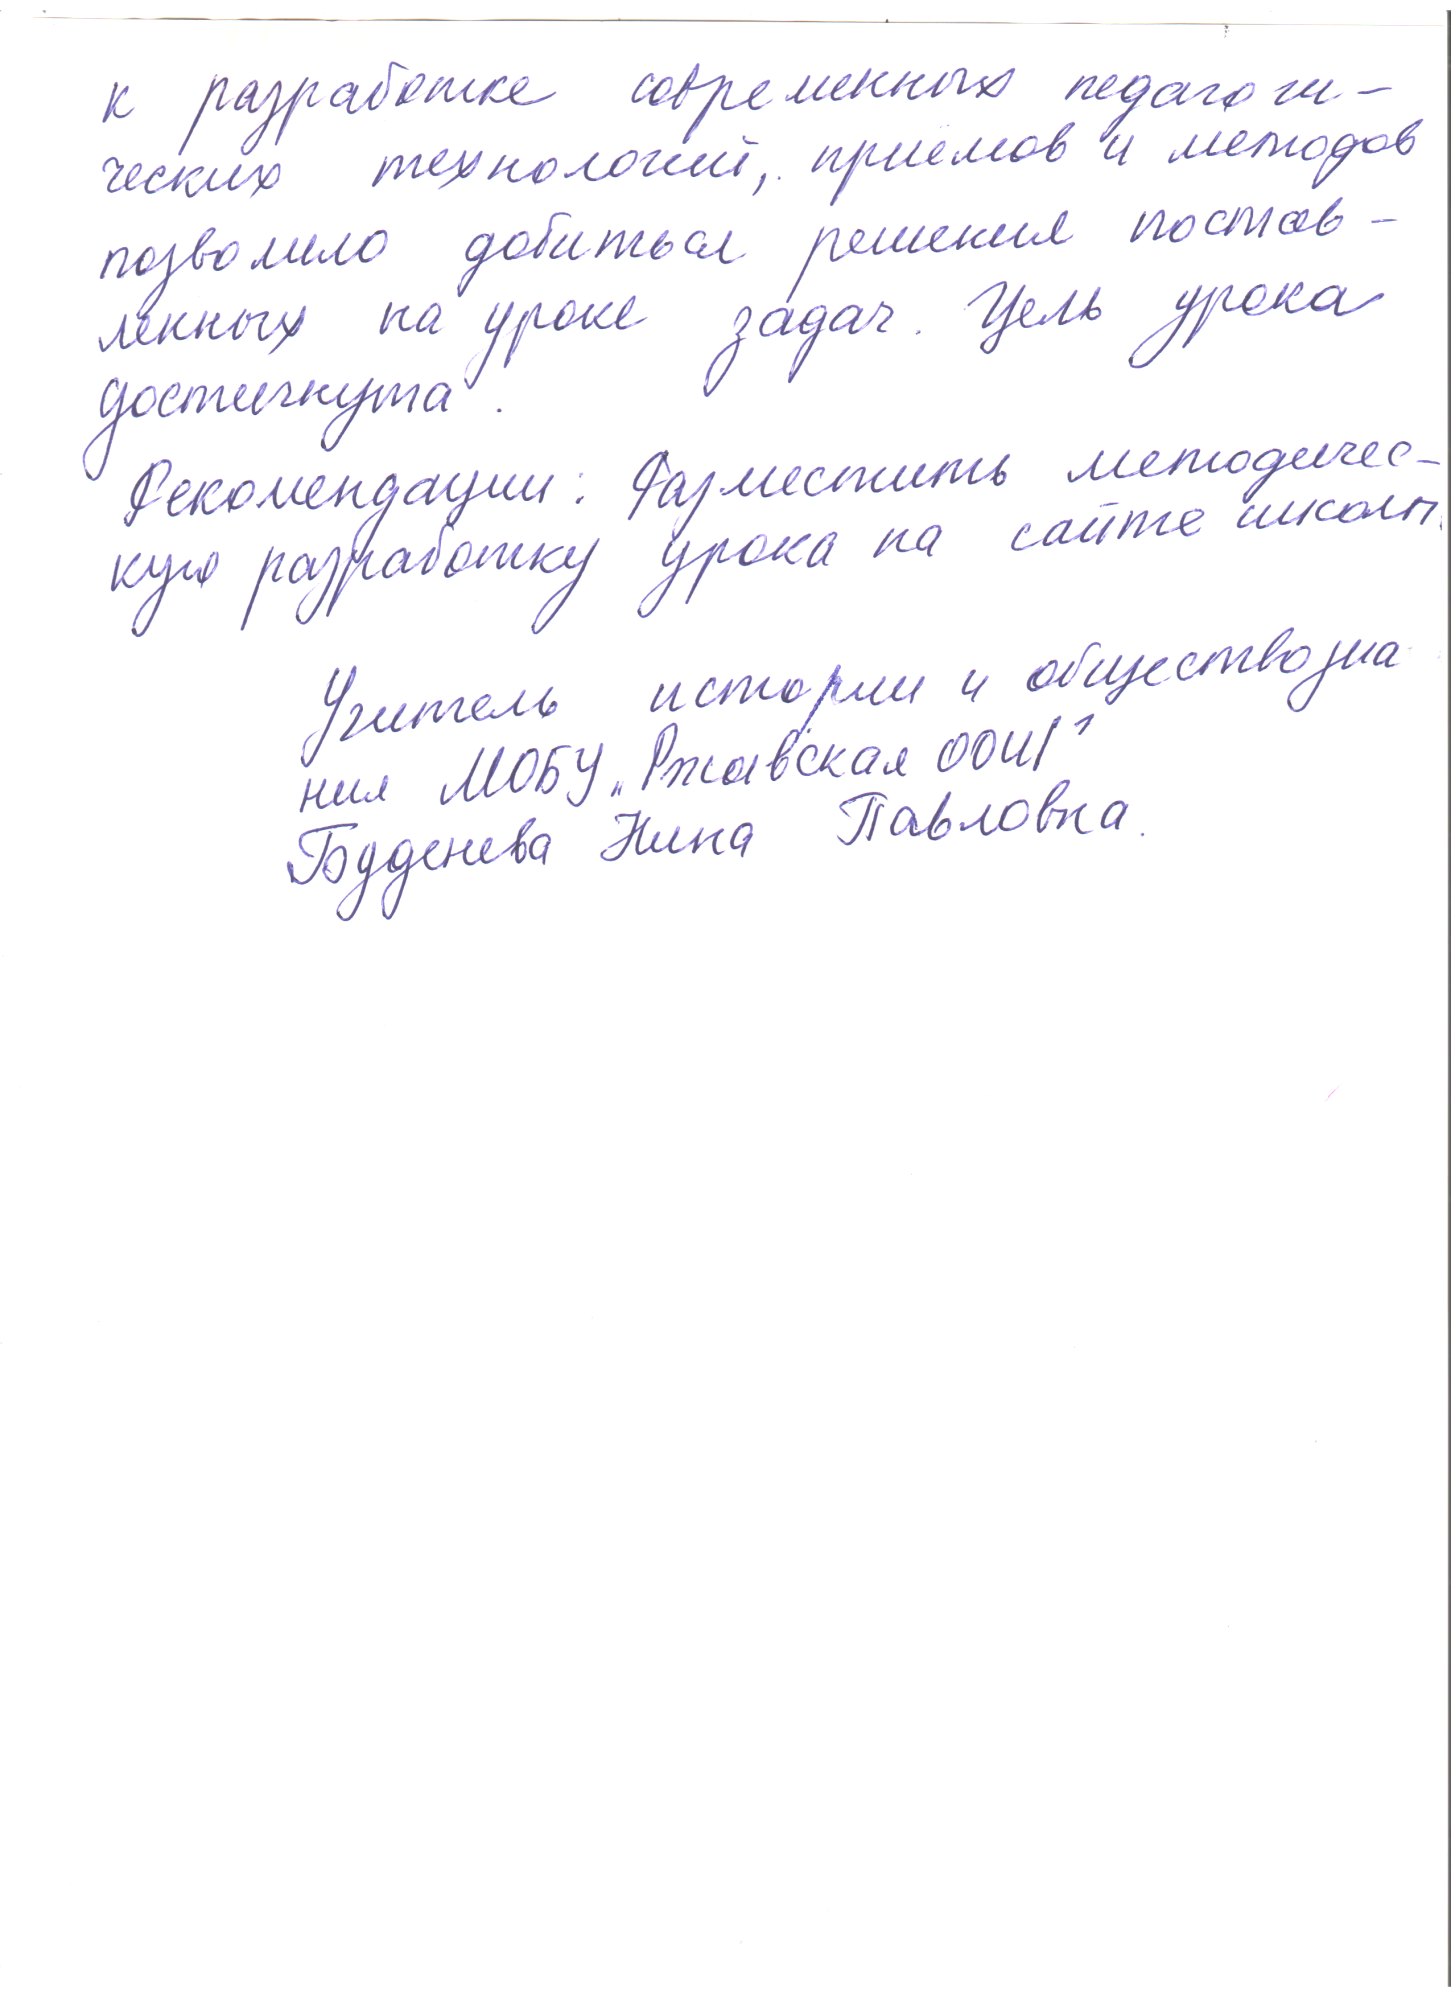 к разработке современных педагоги-
ческих технологий, приёмов и методов
позволило добиться решения постав-
ленных на уроке задач. Цель урока
достигнута.
Рекомендации: Разместить методичес-
кую разработку урока на сайте школы
Учитель истории и обществозна
ния МОБУ „Ржавская ООШ"
Буденева Нина Павловна.